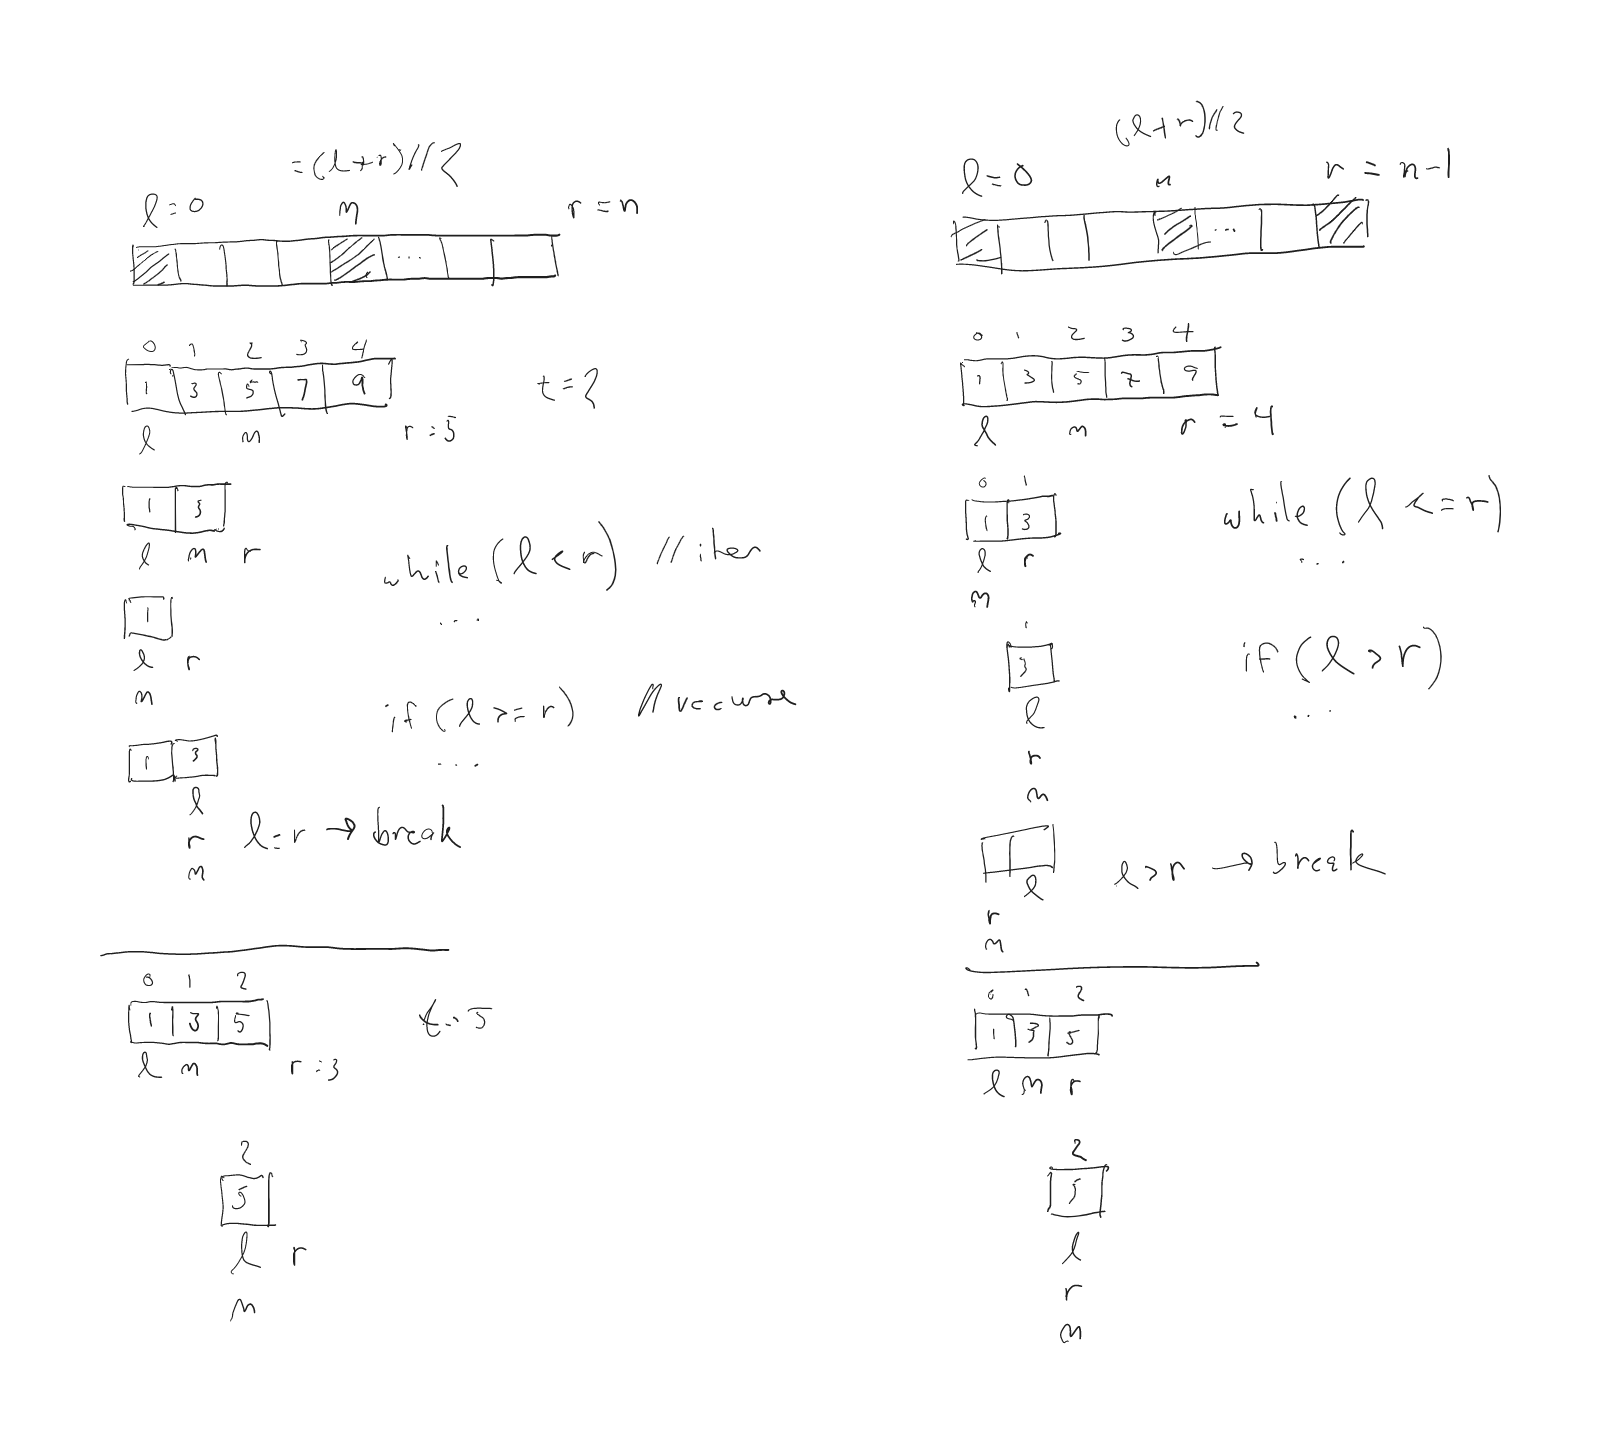 = (l+r)//2
l=0 m r=n
...
0 1 2 3 4
1 3 5 7 9 t=2
l m r=5
1 3
l m r
while (l<r) // iter
...
1
l r
m
if (l>=r) // recurse
...
1 3
l
r
m
l=r → break
0 1 2
1 3 5 t=5
l m r=3
2
5
l r
m
(l+r)//2
l=0 m r=n-1
...
0 1 2 3 4
1 3 5 7 9
l m r=4
0 1
1 3
l r
m
while (l<=r)
...
1
3
l
r
m
if (l>r)
...
l
r
m
l>r → break
0 1 2
1 3 5
l m r
2
5
l
r
m